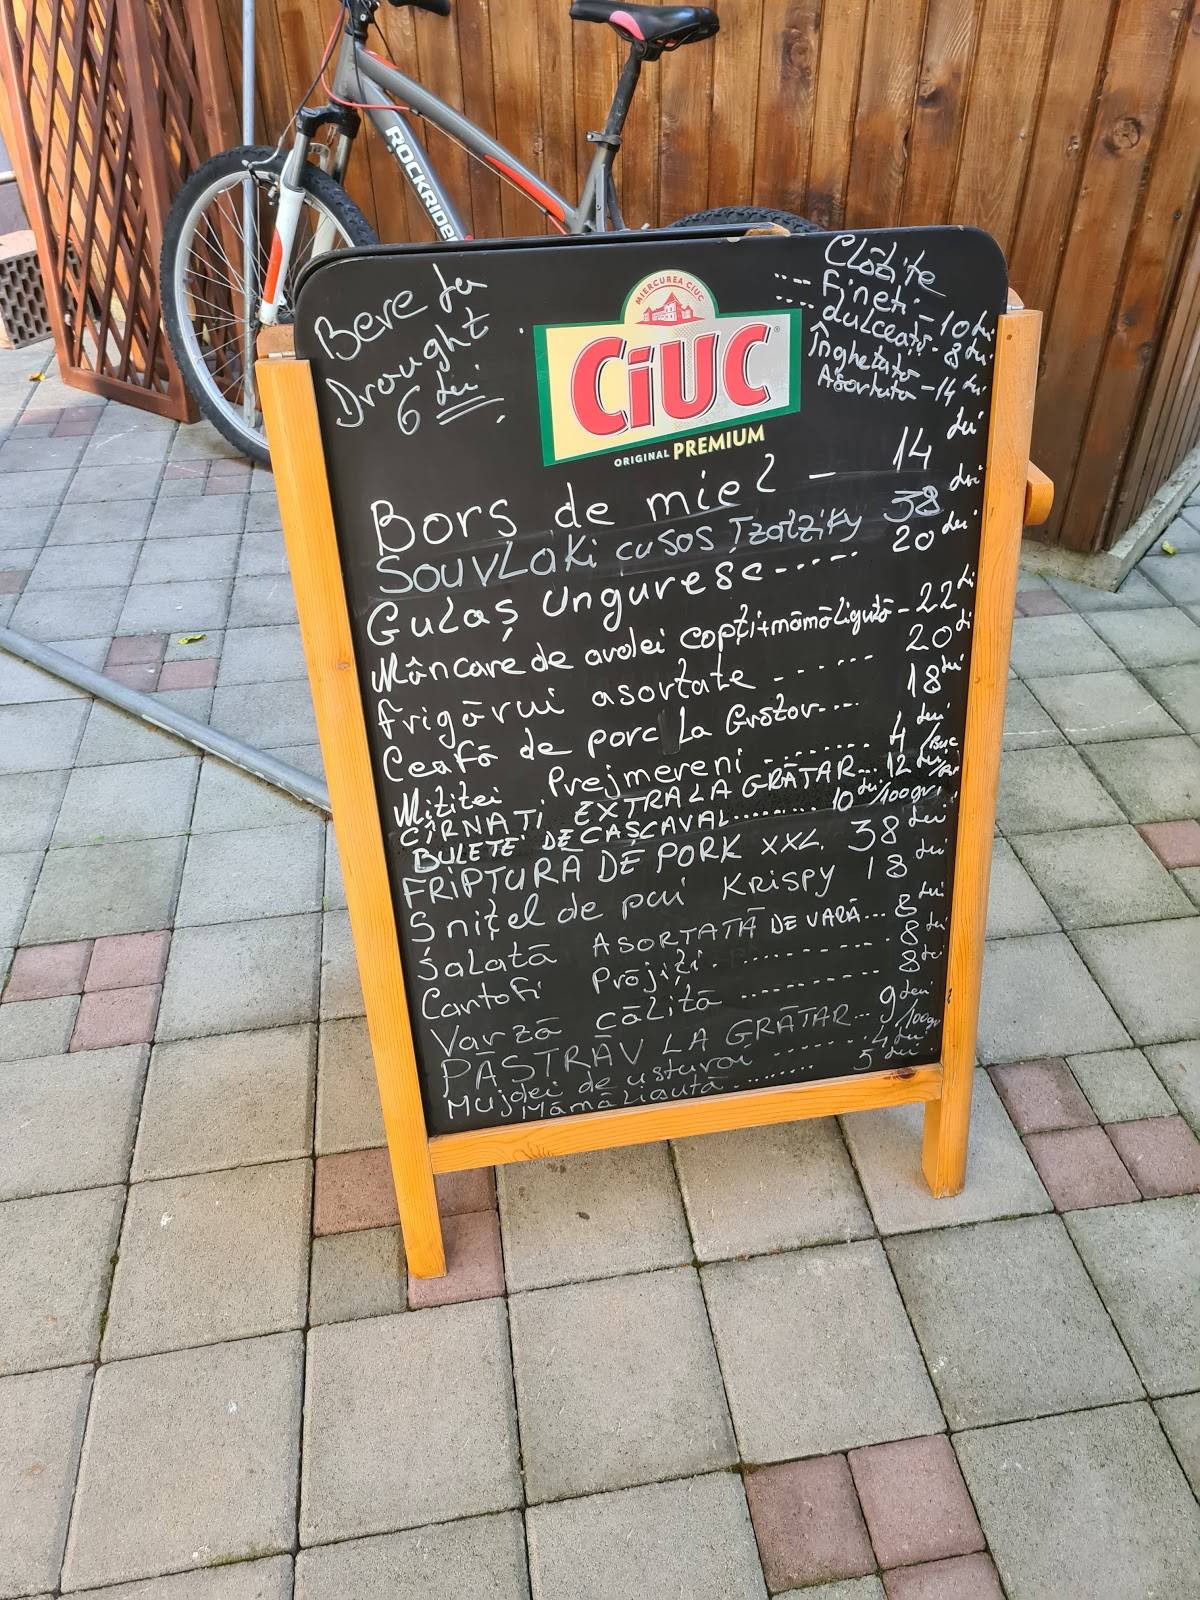 ROCKRIDER
Bere la
Draught
6 Lei
MIERCUREA CIUC
CIUC
ORIGINAL PREMIUM
Clătite
.... Fineti - 10 Lei
.... dulceață - 8 Lei
Înghețată
Asortata - 14 Lei
Borș de miel - 14 Lei
SOUVLAKI cu SOS Tzatziky 38 Lei
Gulaș Unguresc ..... 20 Lei
Mâncare de ardei copți + mămăliguță - 22 Lei
Frigărui asortate ...... 20 Lei
Ceafă de porc La Grătar .... 18 Lei
Mititei Prejmereni ........ 4 Lei/Buc
CÎRNAȚI EXTRA LA GRĂTAR... 12 Lei
BULETE DE CAȘCAVAL......... 10 Lei/100gr
FRIPTURĂ DE PORK XXL. 38 Lei
Snițel de pui Krispy 18 Lei
Salată ASORTATĂ DE VARĂ... 8 Lei
Cartofi Prăjiți. ........... 8 Lei
Varză călită ........... 8 Lei
PĂSTRĂV LA GRĂTAR... 9 Lei/100gr
Mujdei de usturoi ....... 4 Lei
Mămăliguță ......... 5 Lei